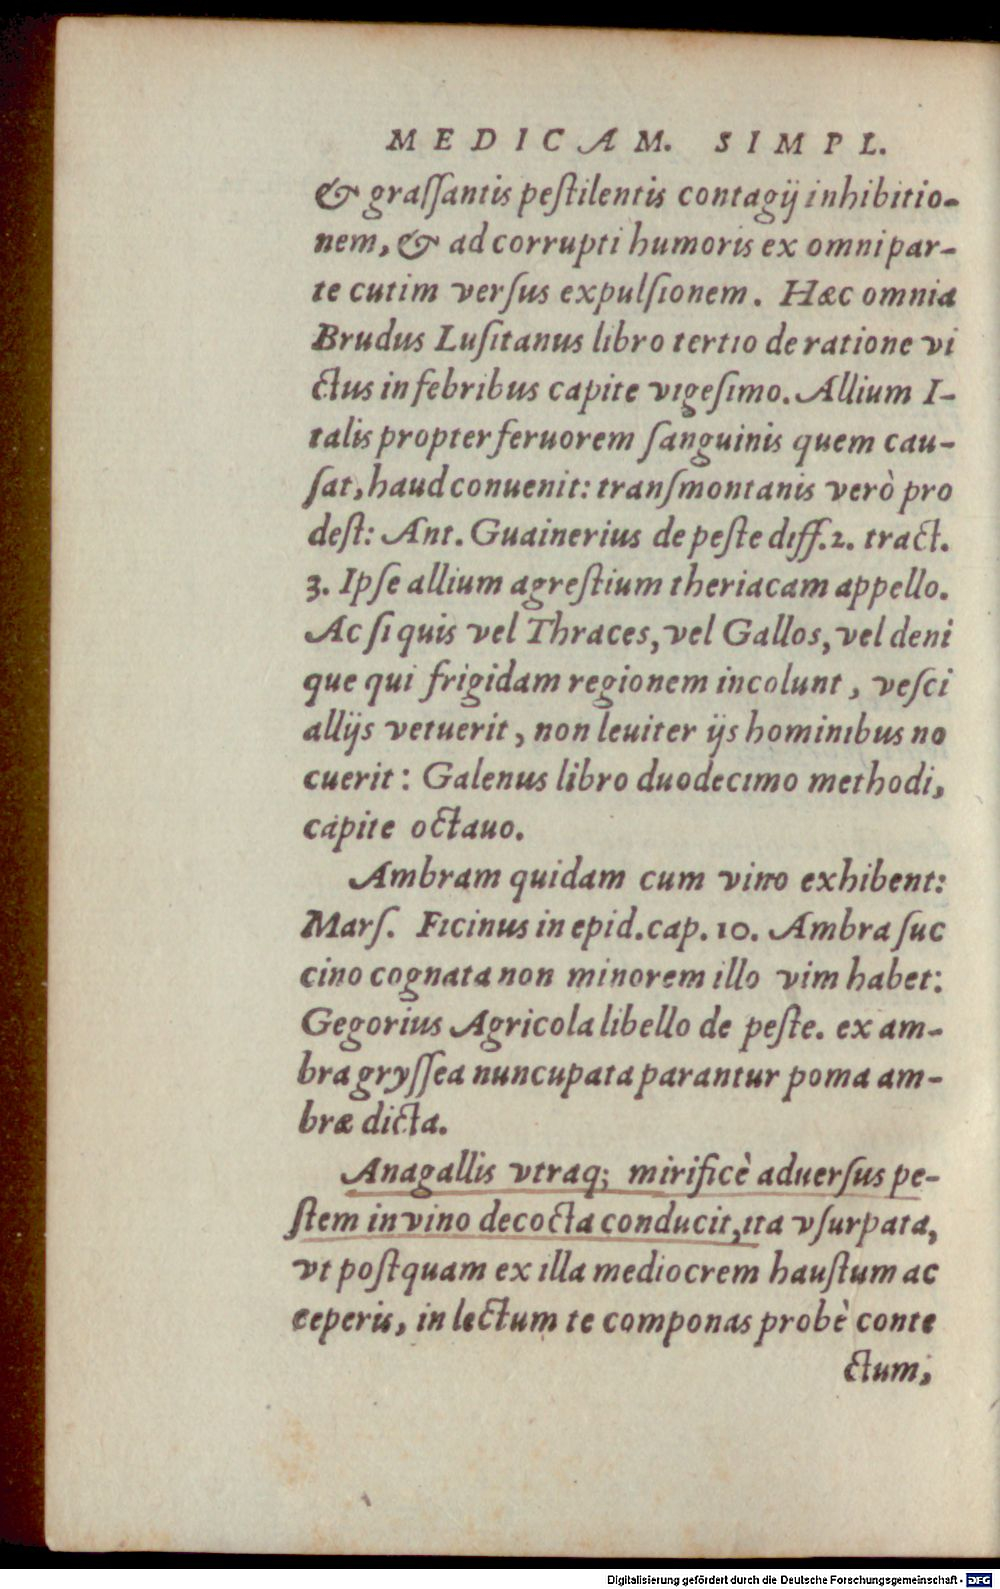 MEDICAM. SIMPL.
& graſſantis peſtilentis contagij inhibitio-
nem, & ad corrupti humoris ex omni par-
te cutim verſus expulſionem. Hæc omnia
Brudus Luſitanus libro tertio de ratione vi
ctus in febribus capite vigeſimo. Allium I-
talis propter feruorem ſanguinis quem cau-
ſat, haud conuenit: tranſmontanis verò pro
deſt: Ant. Guainerius de peſte diff. 2. tract.
3. Ipſe allium agreſtium theriacam appello.
Ac ſi quis vel Thraces, vel Gallos, vel deni
que qui frigidam regionem incolunt, veſci
allijs vetuerit, non leuiter ijs hominibus no
cuerit: Galenus libro duodecimo methodi,
capite octauo.
Ambram quidam cum vino exhibent:
Marſ. Ficinus in epid. cap. 10. Ambra ſuc
cino cognata non minorem illo vim habet:
Gegorius Agricola libello de peſte. ex am-
bra gryſſea nuncupata parantur poma am-
bræ dicta.
Anagallis vtraq; mirificè aduerſus pe-
ſtem in vino decocta conducit, ita vſurpata,
vt poſtquam ex illa mediocrem hauſtum ac
ceperis, in lectum te componas probè conte
ctum,
Digitalisierung gefördert durch die Deutsche Forschungsgemeinschaft - DFG